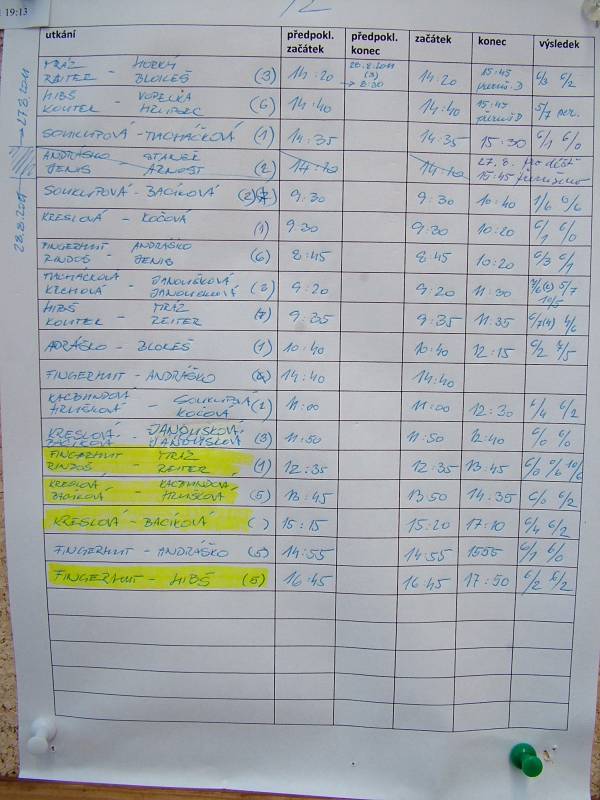 19:13
12
utkání předpokl. začátek předpokl. konec začátek konec výsledek
→ 27.8.2011
28.8.2011
MRÁZ - HORKÝ
REITER - BLOKEŠ (3) 14:20 28.8.2011 (3) → 8:30 14:20 15:45 6/3 6/2
HIBŠ - VOPELKA
KOUTEK - (6) 14:40 14:40 15:45 5/7
SOUKUPOVÁ - TUCHÁČKOVÁ (1) 14:35 14:35 15:30 6/1 6/0
ANDRÁŠKO - STANEK
JENIS - ARNOŠT (2) 14:40 27.8. pro déšť
15:45 přerušeno
SOUKUPOVÁ - BACÍKOVÁ 9:30 9:30 10:40 1/6 0/6
KRESLOVÁ - KOČOVÁ (1) 9:30 9:30 10:20 6/1 6/0
FINGERHUT - ANDRÁŠKO
RINDOŠ - JENIS (6) 8:45 8:45 10:20 6/3 6/1
TUCHÁČKOVÁ - JANOUŠKOVÁ
KRCHOVÁ - JANOUŠKOVÁ (3) 9:20 9:20 11:30 5/7 10/5
HIBŠ - MRÁZ
KOUTEK - REITER (7) 9:35 9:35 11:35 6/7(4) 4/6
ADRÁŠKO - BLOKEŠ (1) 10:40 10:40 12:15 6/2 7/5
FINGERHUT - ANDRÁŠKO 14:40 14:40
SOUKUPOVÁ
HRUŠKOVÁ - KOČOVÁ (2) 11:00 11:00 12:30 6/4 6/2
KRESLOVÁ - JANOUŠKOVÁ
BACÍKOVÁ - JANOUŠKOVÁ (3) 11:50 11:50 12:40 6/0 6/0
FINGERHUT - MRÁZ
RINDOŠ - REITER (1) 12:35 12:35 13:45 6/0 0/6 10/6
KRESLOVÁ -
BACÍKOVÁ - HRUŠKOVÁ (5) 13:45 13:50 14:35 6/0 6/2
KRESLOVÁ - BACÍKOVÁ ( ) 15:15 15:20 17:10 6/4 6/2
FINGERHUT - ANDRÁŠKO (5) 14:55 14:55 1555 6/1 6/0
FINGERHUT - HIBŠ (5) 16:45 16:45 17:50 6/2 6/2